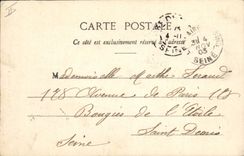 CARTE POSTALE
Ce côté est exclusivement réservé à l'adresse
Mademoiselle Marthe
128 Avenue de Paris 128
Bougies de l'Étoile
Saint Denis
Seine